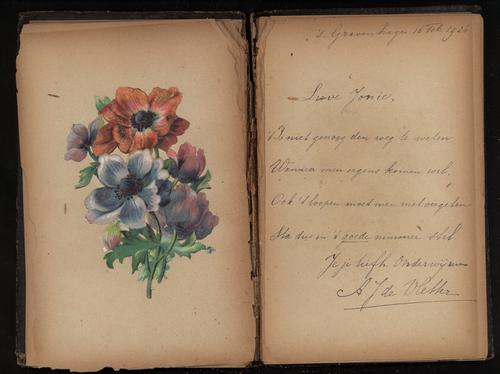 's Gravenhage 16 Feb 1926
Lieve Jonie,
't Is niet genoeg den weg te weten
Wanneer men ergens komen wil.
Ook 't loopen moet men niet vergeten
Sta dus in 't goede nimmer stil
Je je liefh. Onderwijzer
A J de Vletter